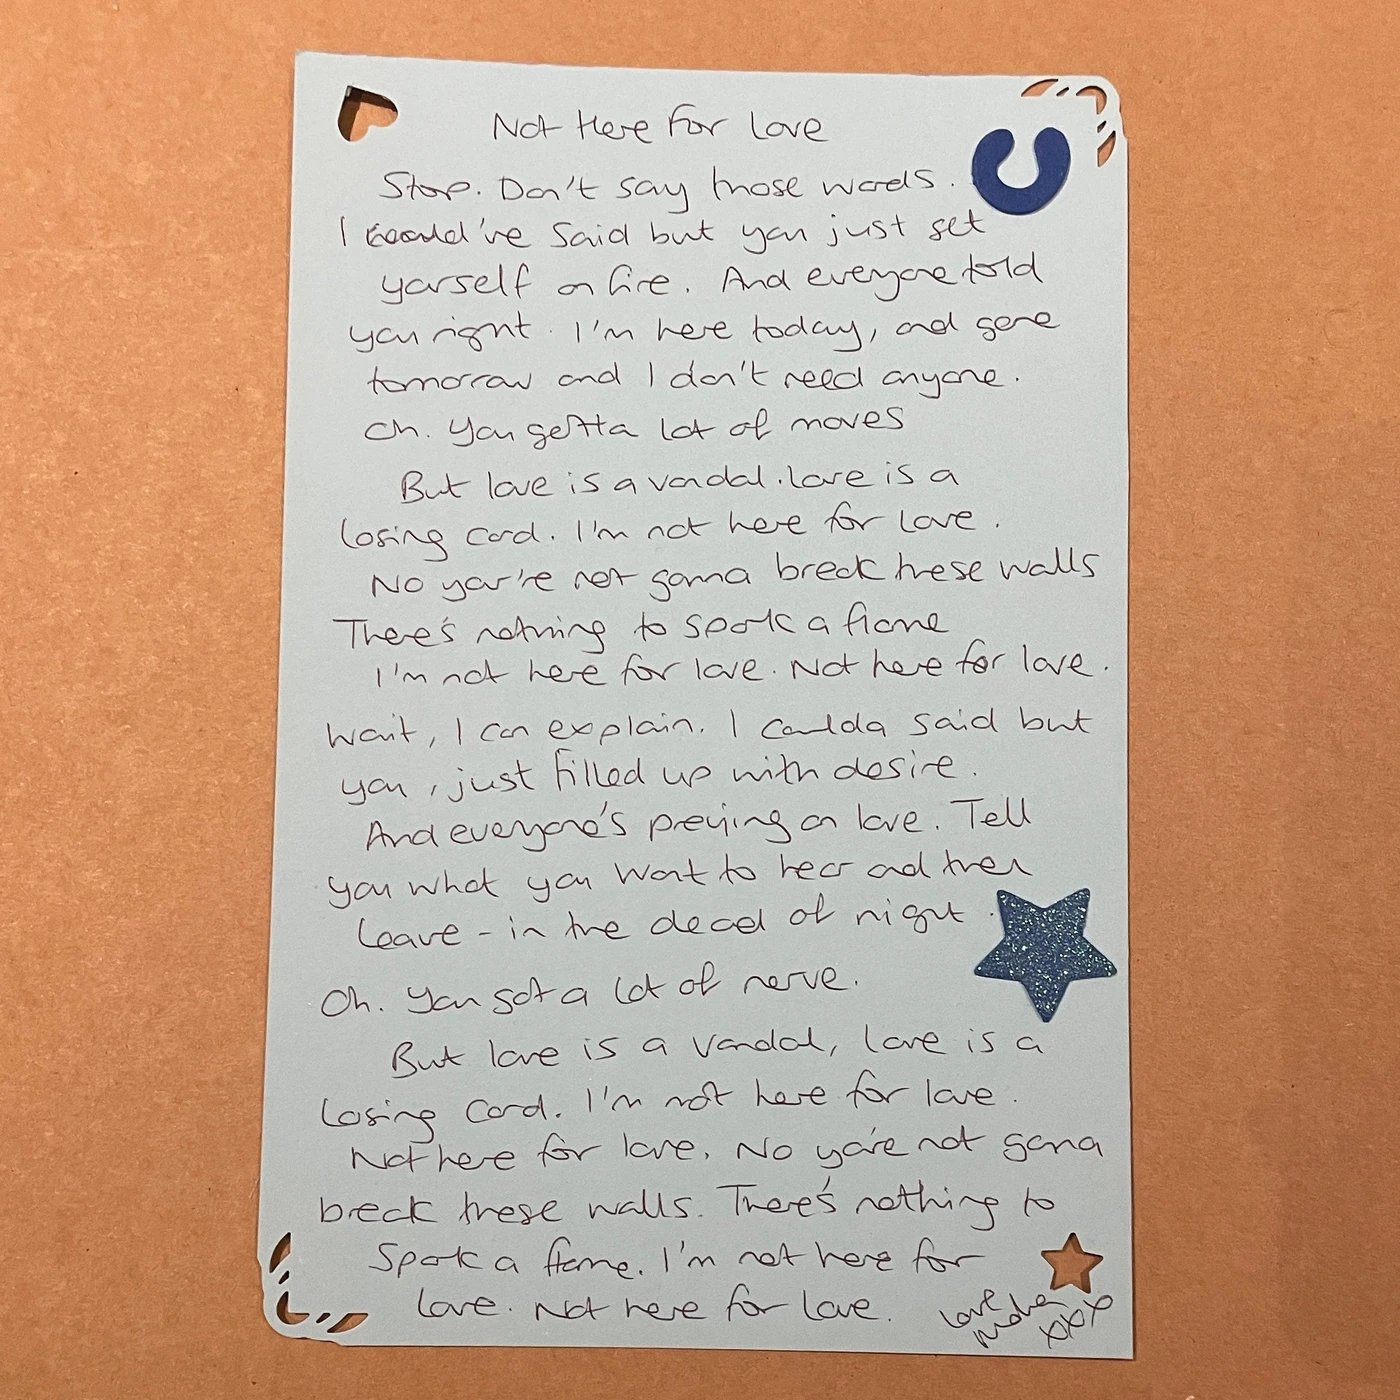 Not Here For Love
Stop. Don't say those words.
I could've said but you just set
yourself on fire. And everyone told
you right. I'm here today, and gone
tomorrow and I don't need anyone.
Oh. You gotta lot of moves
But love is a vandal. Love is a
losing card. I'm not here for love.
No you're not gonna break these walls
There's nothing to spark a flame
I'm not here for love. Not here for love.
Wait, I can explain. I coulda said but
you, just filled up with desire.
And everyone's preying on love. Tell
you what you want to hear and then
leave - in the dead of night.
Oh. You got a lot of nerve.
But love is a vandal, love is a
losing card. I'm not here for love.
Not here for love. No you're not gonna
break these walls. There's nothing to
spark a flame. I'm not here for
love. Not here for love.
love
xxx